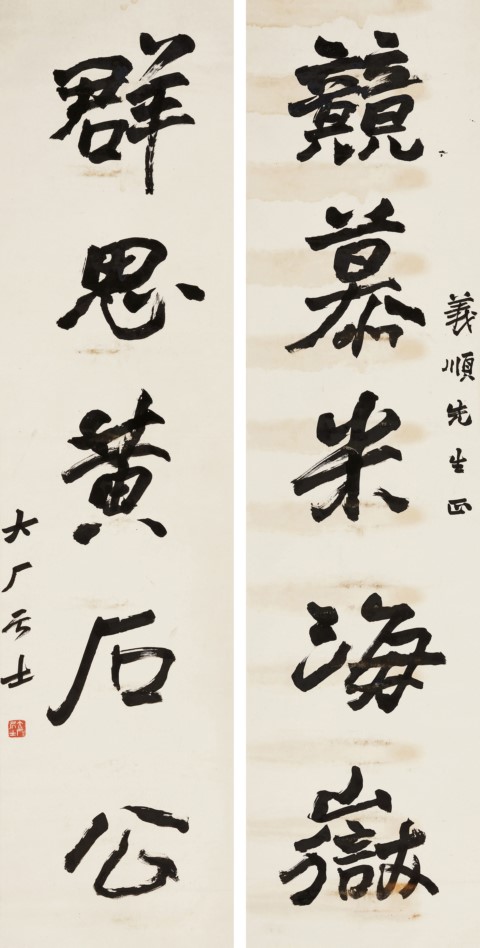 義順先生正
競慕米海嶽
群思黃石公
大厂士